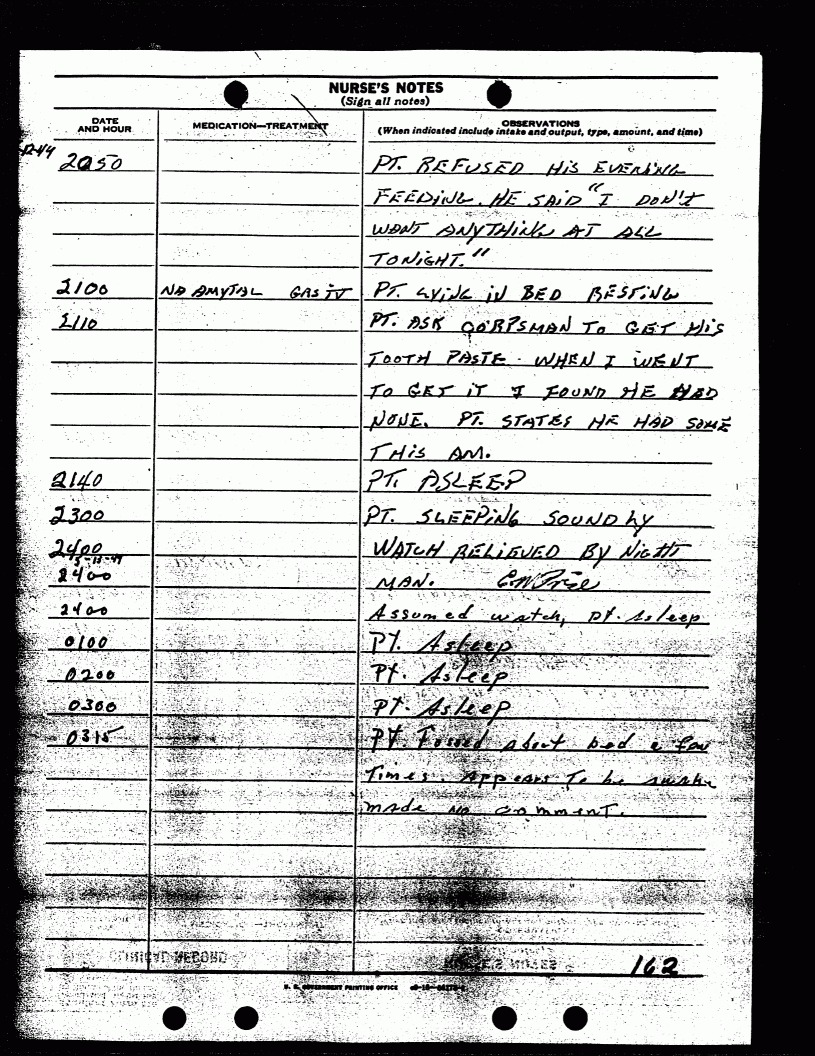 NURSE'S NOTES
(Sign all notes)
DATE AND HOUR
MEDICATION—TREATMENT
OBSERVATIONS
(When indicated include intake and output, type, amount, and time)
2050 PT. REFUSED HIS EVENING
FEEDING. HE SAID "I DON'T
WANT ANYTHING AT ALL
TONIGHT."
2100 NA AMYTAL GRS IV PT. LYING IN BED RESTING
2110 PT. ASK CORPSMAN TO GET HIS
TOOTH PASTE. WHEN I WENT
TO GET IT I FOUND HE HAD
NONE. PT. STATES HE HAD SOME
THIS AM.
2140 PT. ASLEEP
2300 PT. SLEEPING SOUNDLY
2400 WATCH RELIEVED BY NIGHT
2400 MAN.
2400 Assumed watch, pt. Asleep
0100 PT. Asleep
0200 PT. Asleep
0300 PT. Asleep
0315 PT. Tossed about bed a few
Times. Appears To be awake
made no comment.
CLINICAL RECORD
NURSE'S NOTES
162
U. S. GOVERNMENT PRINTING OFFICE